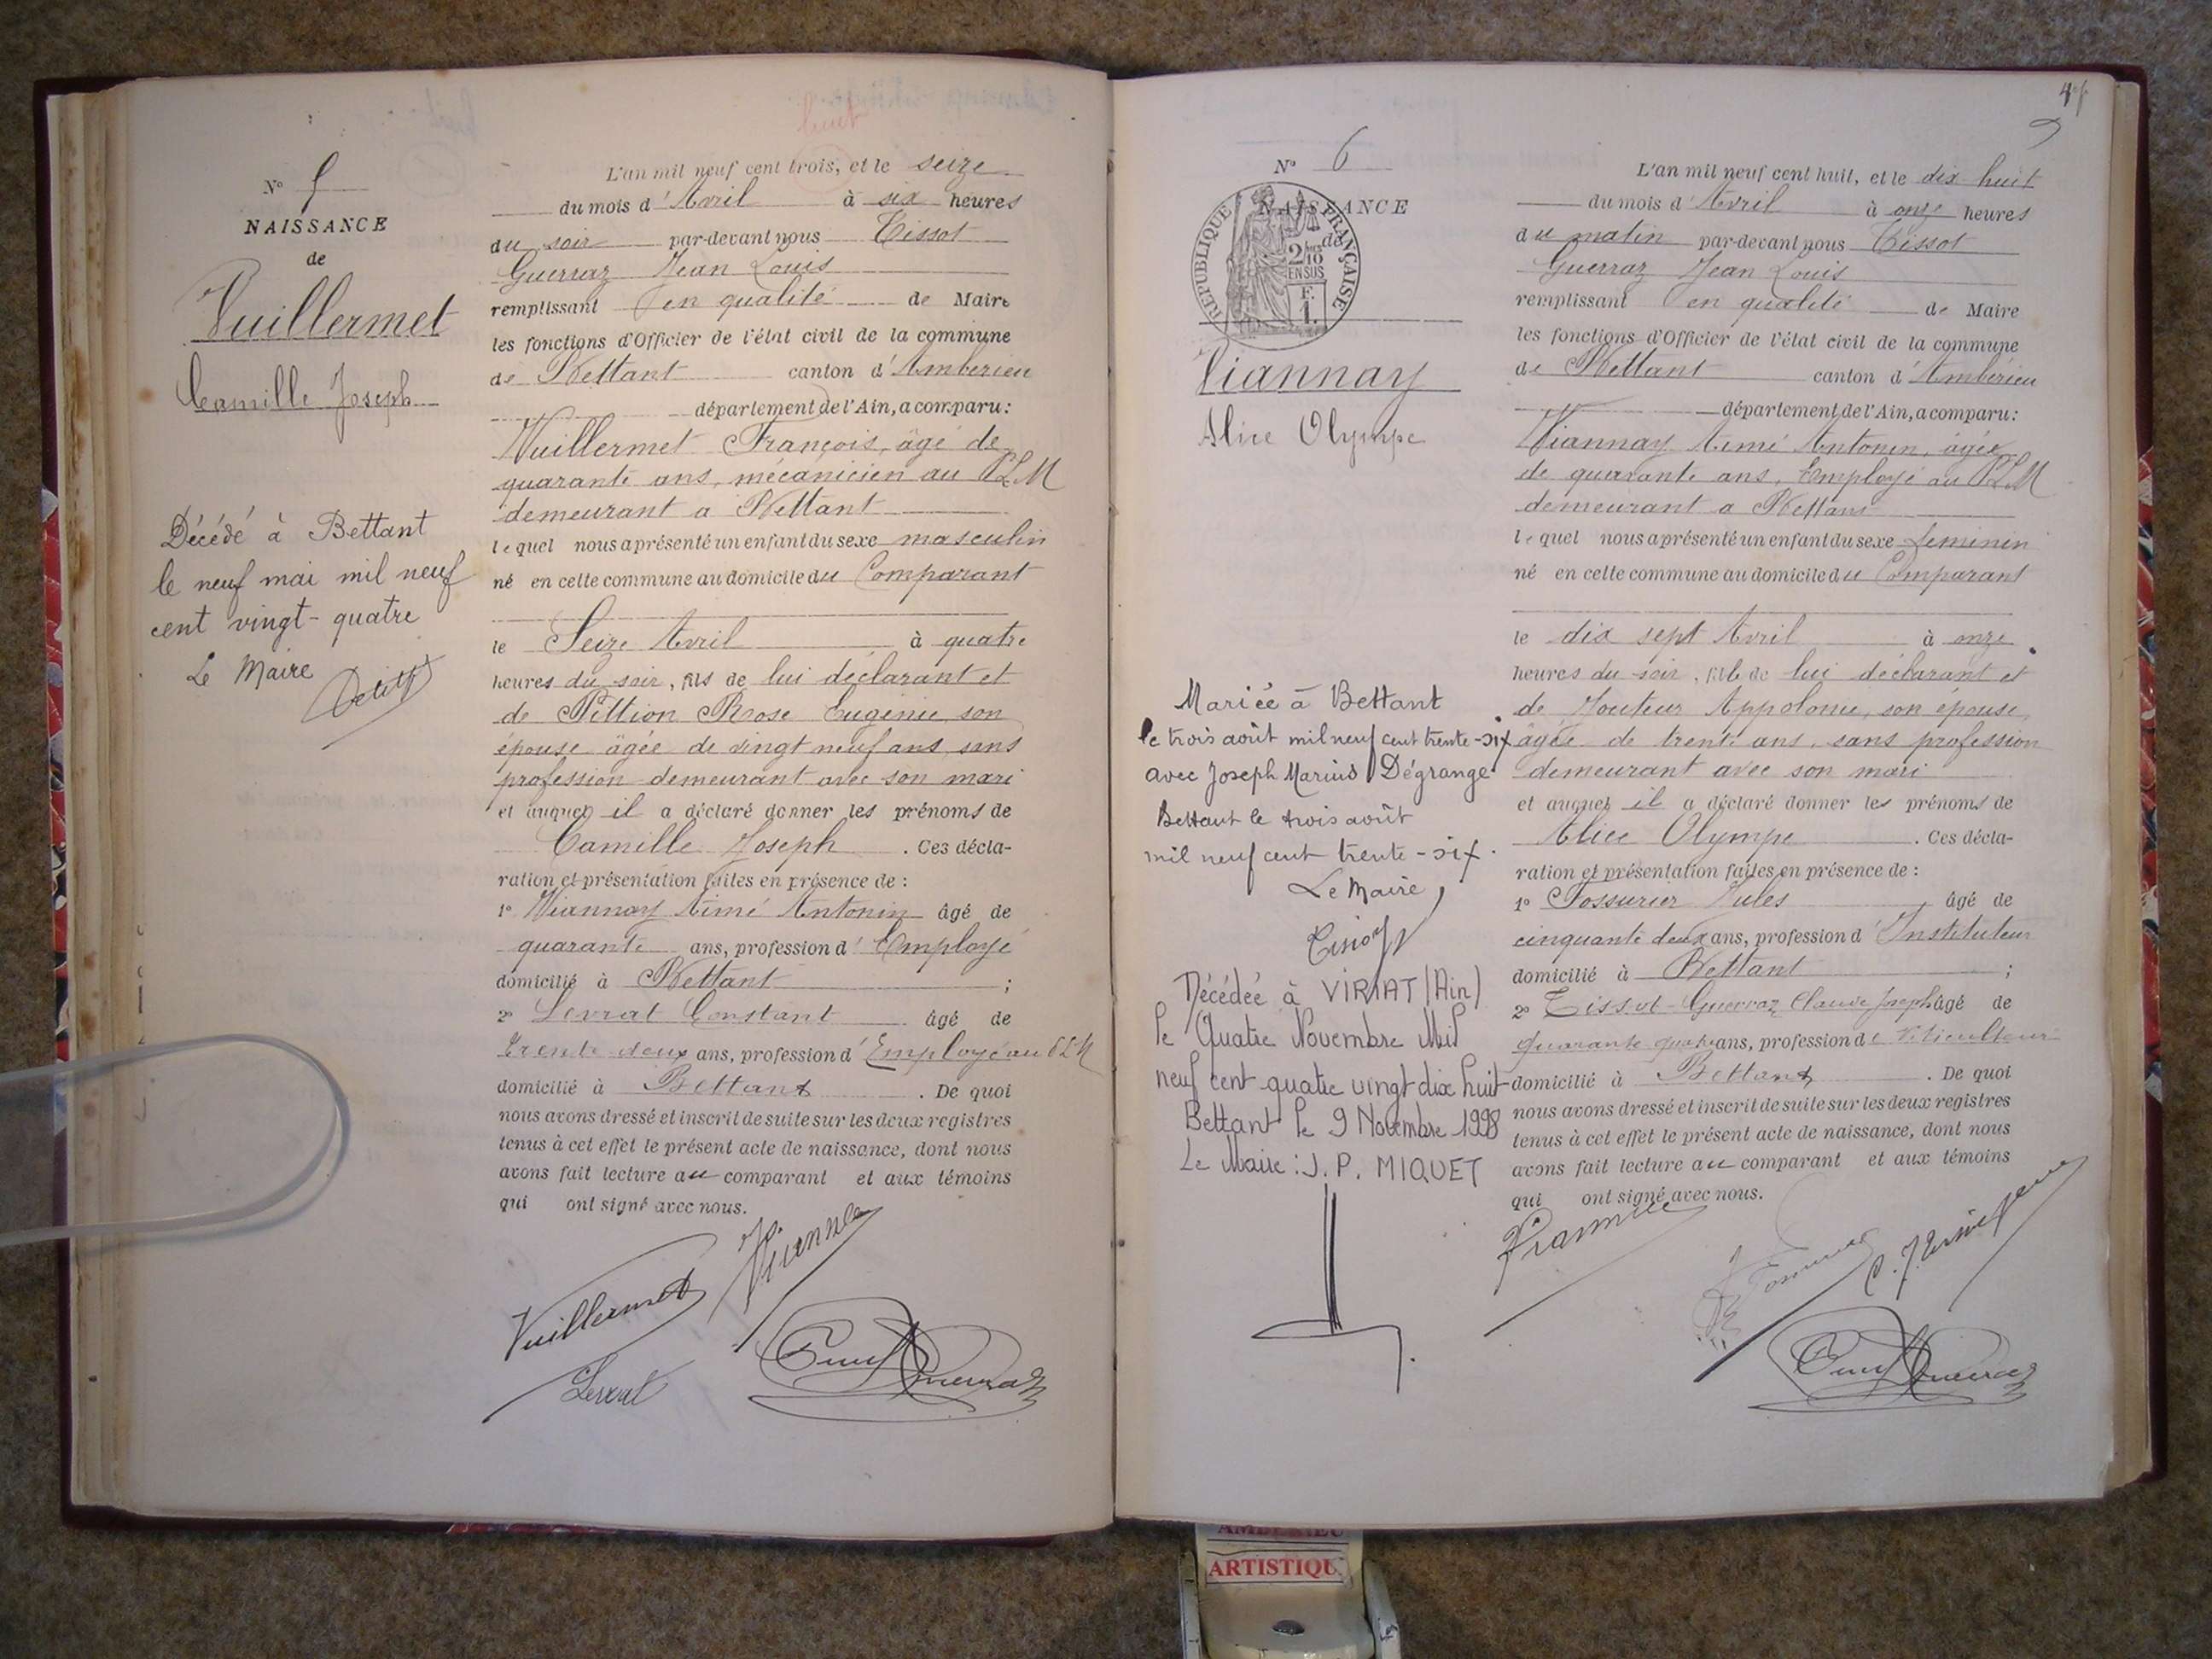 N° 5
NAISSANCE
de
Vuillermet
Camille Joseph
Décédé à Bettant
le neuf mai mil neuf
cent vingt-quatre
Le Maire
L'an mil neuf cent trois, et le seize
huit
du mois d'Avril à six heures
du soir par-devant nous Tissot
Guerraz Jean Louis
remplissant en qualité de Maire
les fonctions d'Officier de l'état civil de la commune
de Bettant canton d'Ambérieu
département de l'Ain, a comparu:
Vuillermet François, âgé de
quarante ans, mécanicien au PLM
demeurant a Bettant
lequel nous a présenté un enfant du sexe masculin
né en cette commune au domicile du Comparant
le Seize Avril à quatre
heures du soir, fils de lui déclarant et
de Pittion Rose Eugénie son
épouse âgée de vingt neuf ans sans
profession demeurant avec son mari
et auquel il a déclaré donner les prénoms de
Camille Joseph. Ces décla-
ration et présentation faites en présence de :
1° Viannay Aimé Antonin âgé de
quarante ans, profession d'Employé
domicilié à Bettant ;
2° Levrat Constant âgé de
trente deux ans, profession d'Employé au PLM
domicilié à Bettant. De quoi
nous avons dressé et inscrit de suite sur les deux registres
tenus à cet effet le présent acte de naissance, dont nous
avons fait lecture au comparant et aux témoins
qui ont signé avec nous.
Vuillermet
Viannay
Levrat
Guerraz
N° 6
NAISSANCE
de
RÉPUBLIQUE FRANÇAISE
2/10
EN SUS
F.
1.
Viannay
Alice Olympe
Mariée à Bettant
le trois août mil neuf cent trente-six
avec Joseph Marius Dégrange
Bettant le trois août
mil neuf cent trente-six.
Le Maire,
Décédée à VIRIAT (Ain)
le Quatre Novembre Mil
neuf cent quatre vingt dix huit
Bettant le 9 Novembre 1998
Le Maire : J. P. MIQUET
L'an mil neuf cent huit, et le dix huit
du mois d'Avril à onze heures
du matin par-devant nous Tissot
Guerraz Jean Louis
remplissant en qualité de Maire
les fonctions d'Officier de l'état civil de la commune
de Bettant canton d'Ambérieu
département de l'Ain, a comparu:
Viannay Aimé Antonin, âgée
de quarante ans, Employé au PLM
demeurant a Bettant
lequel nous a présenté un enfant du sexe féminin
né en cette commune au domicile du Comparant
le dix sept Avril à onze
heures du soir, fille de lui déclarant et
de Jouteur Appolonie, son épouse,
âgée de trente ans, sans profession
demeurant avec son mari
et auquel il a déclaré donner les prénoms de
Alice Olympe. Ces décla-
ration et présentation faites en présence de :
1° Fossurier Jules âgé de
cinquante deux ans, profession d'Instituteur
domicilié à Bettant ;
2° Tissot-Guerraz Claude Joseph âgé de
quarante quatre ans, profession de Viticulteur
domicilié à Bettant. De quoi
nous avons dressé et inscrit de suite sur les deux registres
tenus à cet effet le présent acte de naissance, dont nous
avons fait lecture au comparant et aux témoins
qui ont signé avec nous.
Viannay
Guerraz
AMBÉRIEU
ARTISTIQU